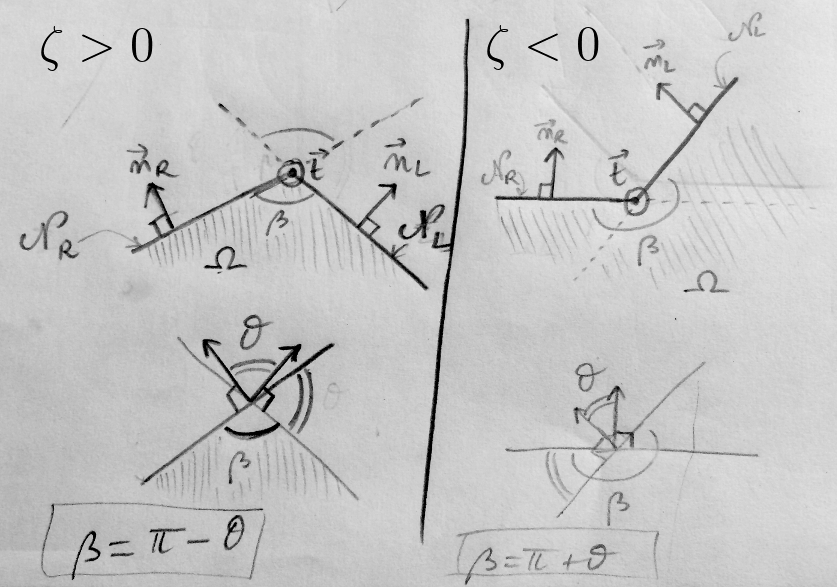 ζ > 0
n⃗_R
t⃗
n⃗_L
β
𝒩_R
𝒩_L
Ω
θ
θ
β
β = π − θ
ζ < 0
𝒩_L
n⃗_L
n⃗_R
𝒩_R
t⃗
β
Ω
θ
β
β = π + θ